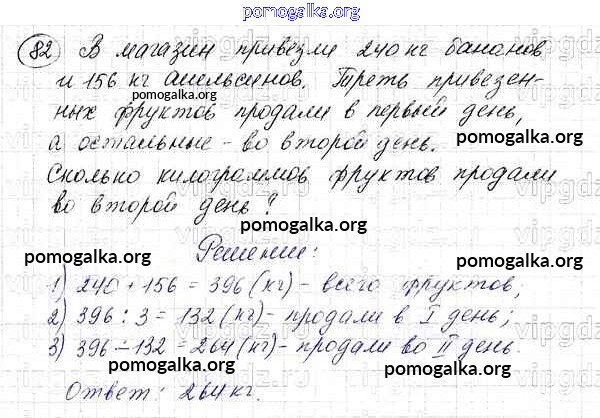 pomogalka.org
82 В магазин привезли 240 кг бананов
и 156 кг апельсинов. Треть привезен-
ных фруктов продали в первый день,
pomogalka.org
а остальные - во второй день.
pomogalka.org
Сколько килограммов фруктов продали
во второй день?
pomogalka.org
Решение:
pomogalka.org
pomogalka.org
1) 240 + 156 = 396 (кг) - всего фруктов;
2) 396 : 3 = 132 (кг) - продали в I день;
3) 396 - 132 = 264 (кг) - продали во II день.
pomogalka.org
Ответ: 264 кг.
pomogalka.org